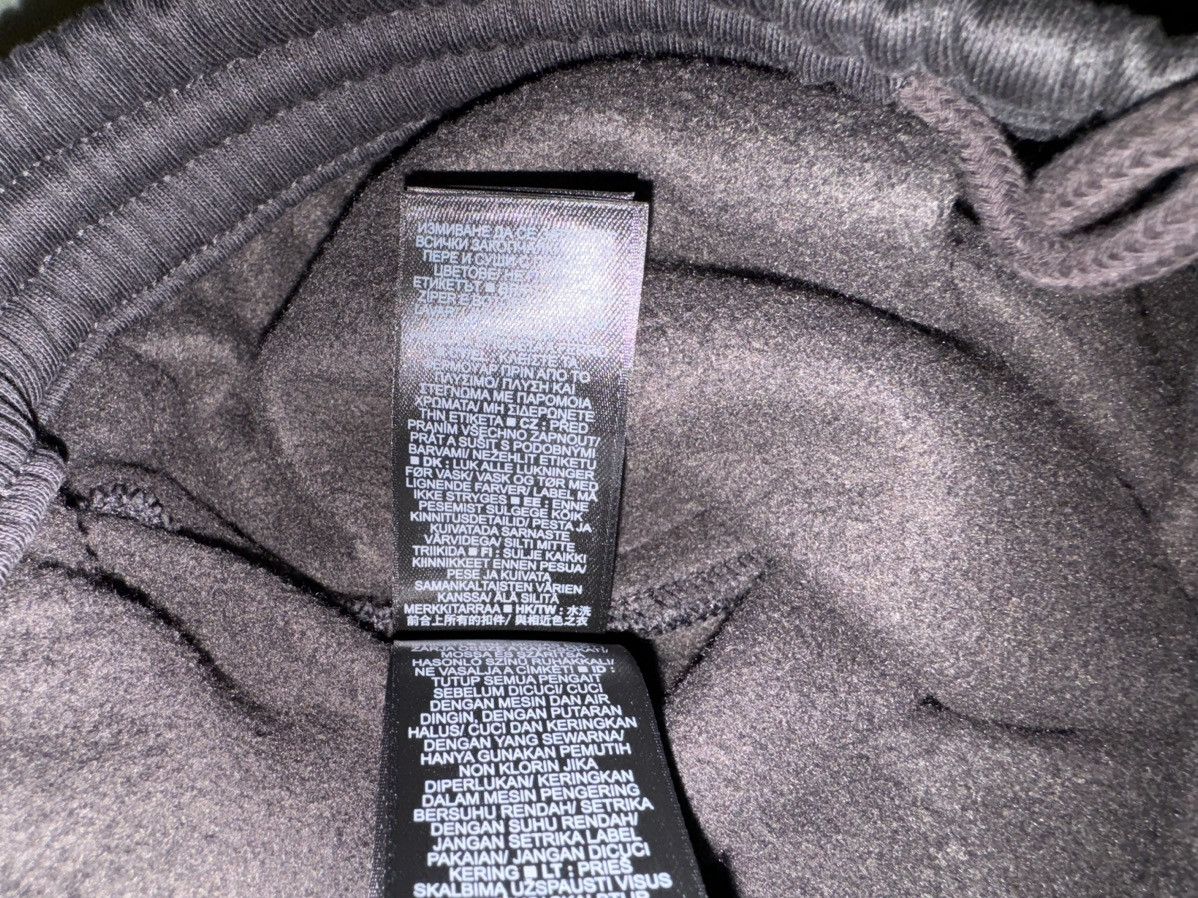 ИЗМИВАНЕ ДА СЕ
ВСИЧКИ ЗАКОПЧА
ПЕРЕ И СУШИ С
ЦВЕТОВЕ/ НЕ
ЕТИКЕТЪТ ■
ZIPER E
ΦΕΡΜΟΥΑΡ ΠΡΙΝ ΑΠΟ ΤΟ
ΠΛΥΣΙΜΟ/ ΠΛΥΣΗ ΚΑΙ
ΣΤΕΓΝΩΜΑ ΜΕ ΠΑΡΟΜΟΙΑ
ΧΡΩΜΑΤΑ/ ΜΗ ΣΙΔΕΡΩΝΕΤΕ
ΤΗΝ ΕΤΙΚΕΤΑ ■ CZ : PŘED
PRANÍM VŠECHNO ZAPNOUT/
PRÁT A SUŠIT S PODOBNÝMI
BARVAMI/ NEŽEHLIT ETIKETU
■ DK : LUK ALLE LUKNINGER
FØR VASK/ VASK OG TØR MED
LIGNENDE FARVER/ LABEL MÅ
IKKE STRYGES ■ EE : ENNE
PESEMIST SULGEGE KÕIK
KINNITUSDETAILID/ PESTA JA
KUIVATADA SARNASTE
VÄRVIDEGA/ SILTI MITTE
TRIIKIDA ■ FI : SULJE KAIKKI
KIINNIKKEET ENNEN PESUA/
PESE JA KUIVATA
SAMANKALTAISTEN VÄRIEN
KANSSA/ ÄLÄ SILITÄ
MERKKITARRAA ■ HK/TW : 水洗
前合上所有的扣件/ 與相近色之衣
MOSSA ÉS SZÁRÍTSA
HASONLÓ SZÍNŰ RUHÁKKAL/
NE VASALJA A CÍMKÉT! ■ ID :
TUTUP SEMUA PENGAIT
SEBELUM DICUCI/ CUCI
DENGAN MESIN DAN AIR
DINGIN, DENGAN PUTARAN
HALUS/ CUCI DAN KERINGKAN
DENGAN YANG SEWARNA/
HANYA GUNAKAN PEMUTIH
NON KLORIN JIKA
DIPERLUKAN/ KERINGKAN
DALAM MESIN PENGERING
BERSUHU RENDAH/ SETRIKA
DENGAN SUHU RENDAH/
JANGAN SETRIKA LABEL
PAKAIAN/ JANGAN DICUCI
KERING ■ LT : PRIEŠ
SKALBIMĄ UŽSPAUSTI VISUS